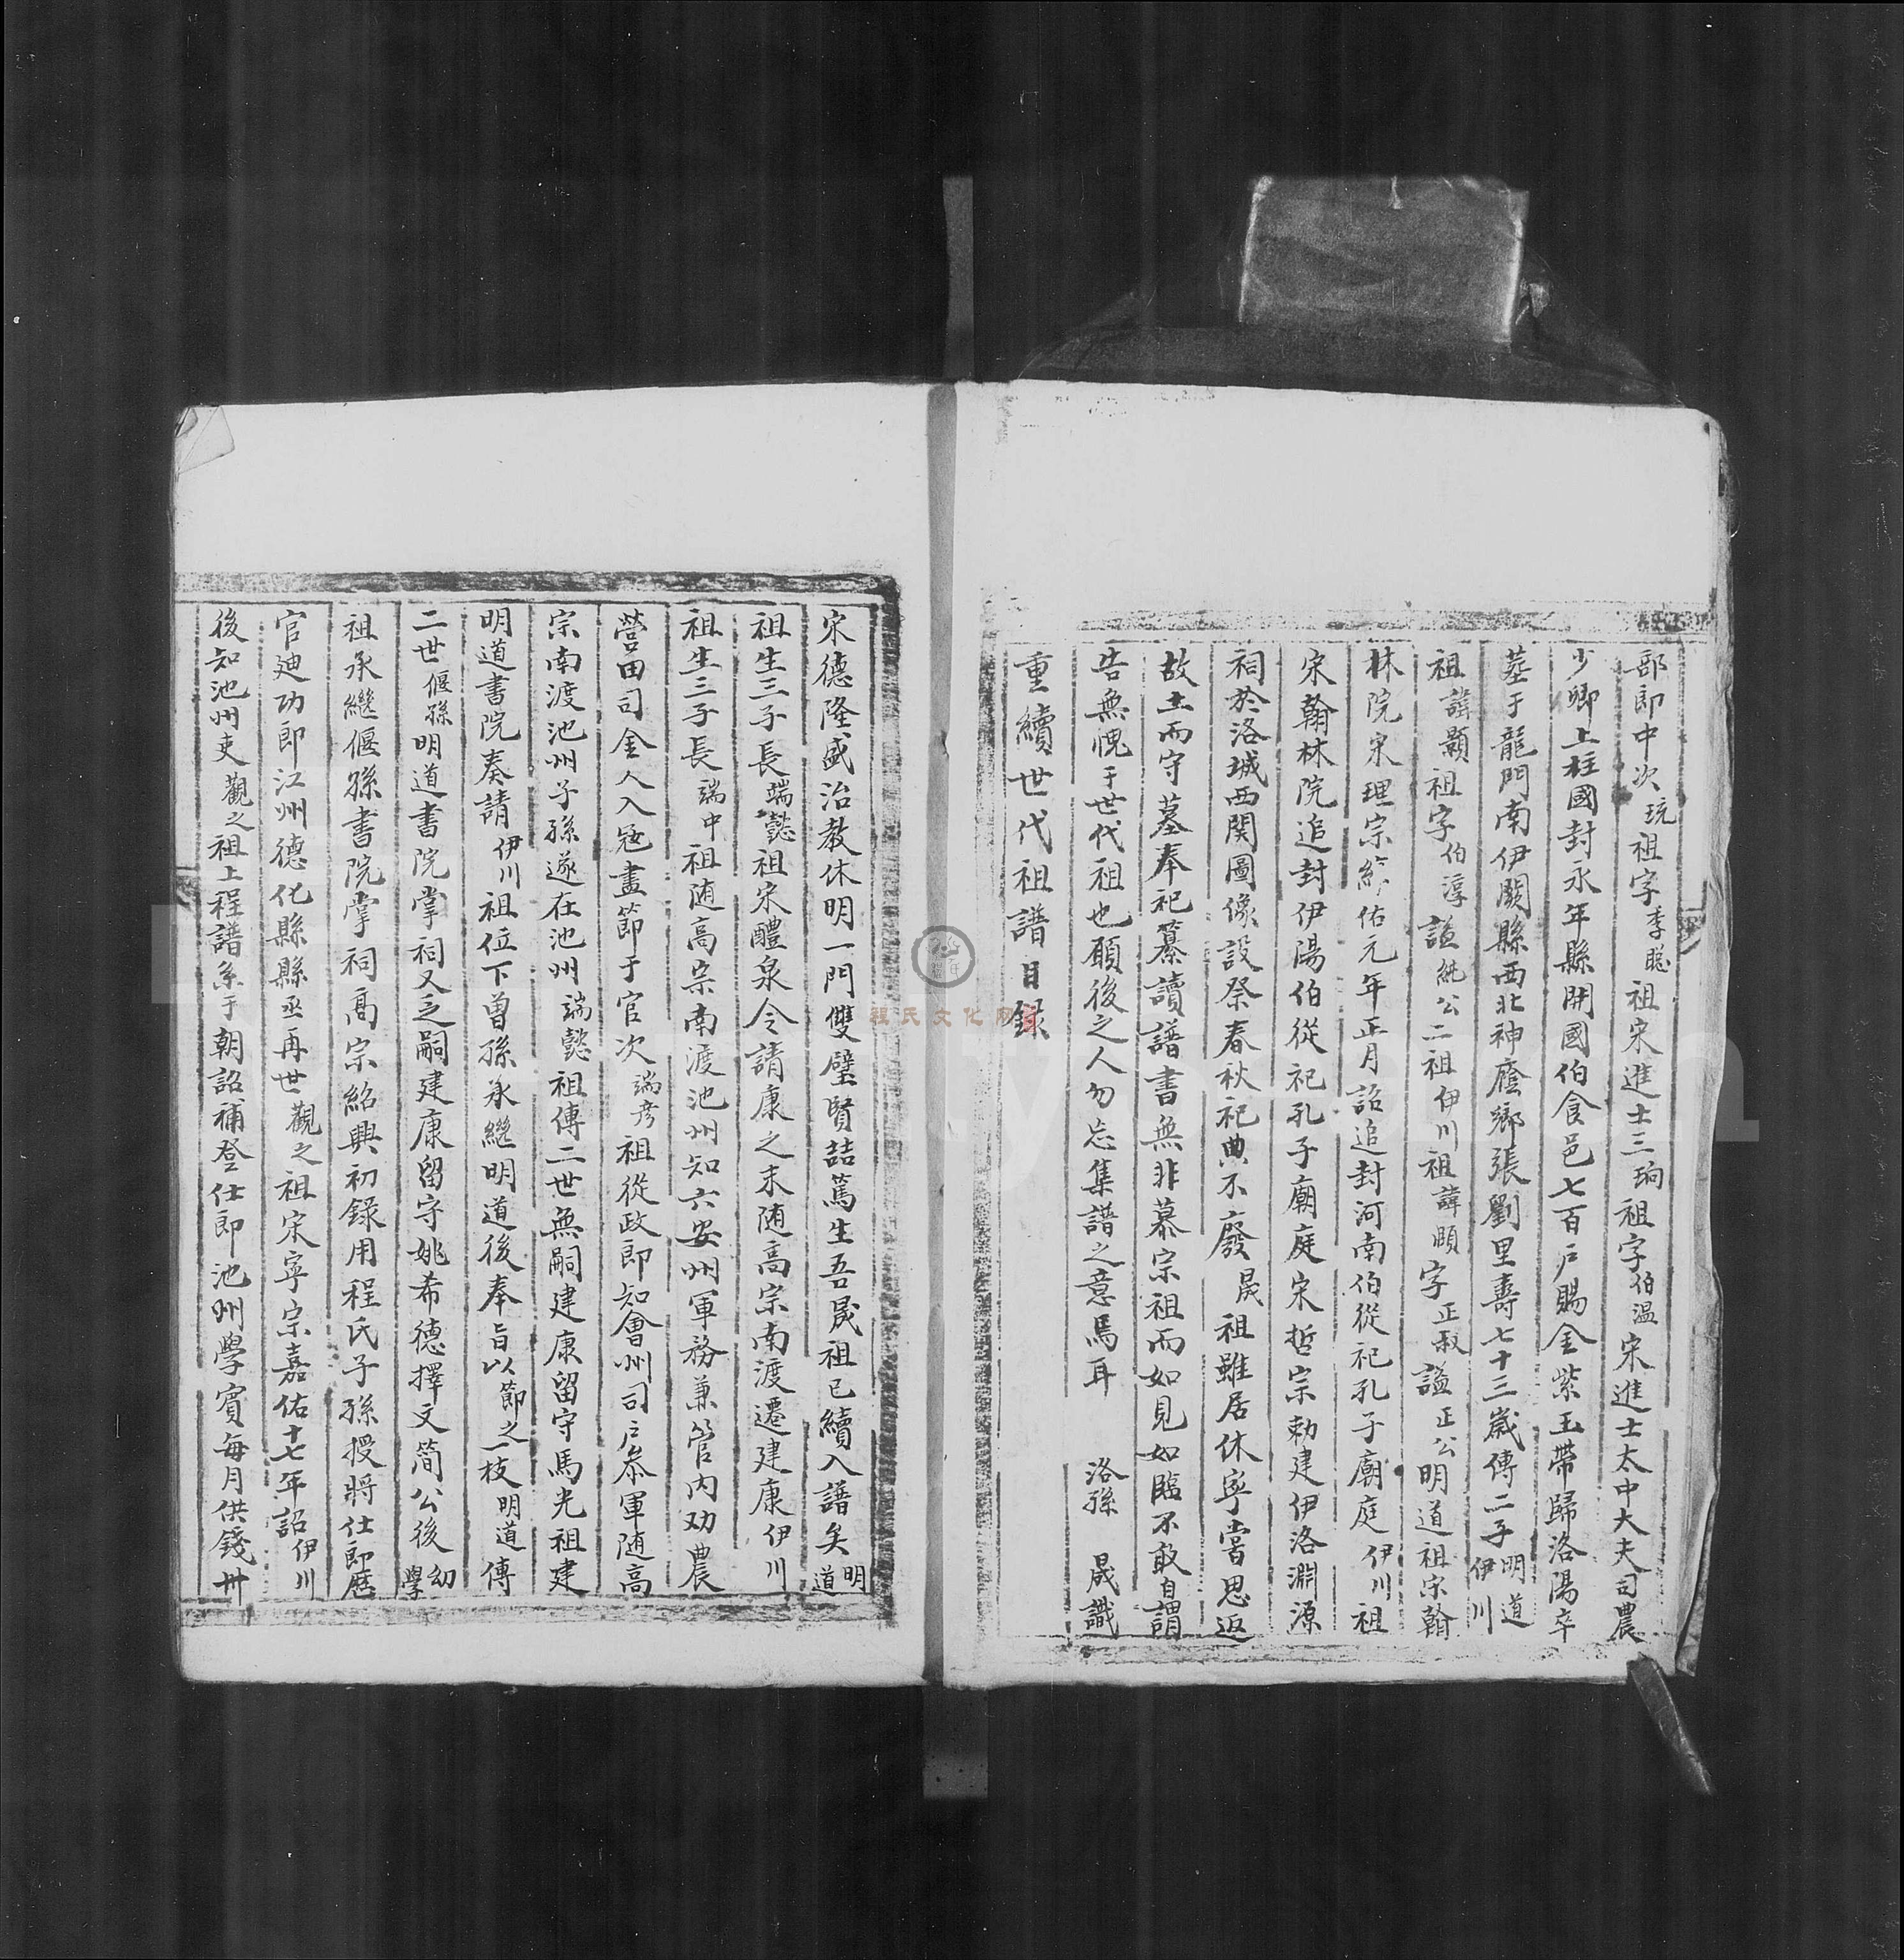 部郎中次珫祖字季聡祖宋進士三珦祖字伯温宋進士太中大夫司農
少卿上柱國封永年縣開國伯食邑七百户賜金紫玉帶歸洛陽卒
墓于龍門南伊闕縣西北神廕鄉張劉里壽七十三歲傳二子明道伊川
祖諱顥祖字伯淳謚純公二祖伊川祖諱頤字正叔謚正公明道祖宋翰
林院宋理宗給佑元年正月詔追封河南伯從祀孔子廟庭伊川祖
宋翰林院追封伊陽伯從祀孔子廟庭宋哲宗勅建伊洛淵源
祠於洛城西関圖像設祭春秋祀典不廢晟祖雖居休寧嘗思返
故土而守墓奉祀纂讀譜書無非慕宗祖而如見如臨不敢自謂
告無愧于世代祖也願後之人勿忘集譜之意焉耳 洛孫 晟識
重續世代祖譜目録
宋德隆盛治教休明一門雙璧賢喆篤生吾晟祖已續入譜矣明道
祖生三子長端懿祖宋醴泉令請康之末随高宗南渡遷建康伊川
祖生三子長端中祖随高宗南渡池州知六安州軍務兼管内劝農
營田司金人入寇盡節于官次端彦祖從政郎知會州司户叅軍随高
宗南渡池州子孫遂在池州端懿祖傳二世無嗣建康留守馬光祖建
明道書院奏請伊川祖位下曾孫承繼明道後奉旨以節之一枝明道傳
二世偃孫明道書院掌祠又乏嗣建康留守姚希德擇文簡公後幼學
祖承繼偃孫書院掌祠高宗紹興初錄用程氏子孫授將仕郎歷
官迪功郎江州德化縣縣丞再世觀之祖宋寧宗嘉佑十七年詔伊川
後知池州吏觀之祖上程譜系于朝詔補登仕郎池州學賓每月供錢卅
程氏文化网